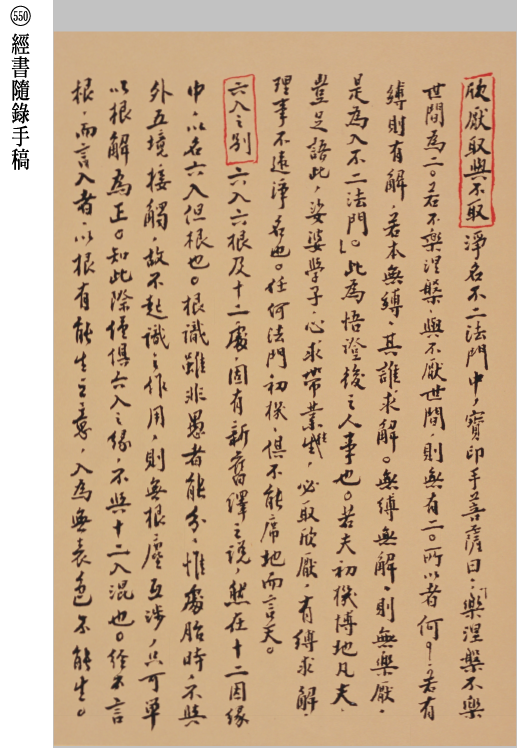 550
經書隨錄手稿
欣厭取與不取 淨名不二法門中,寶印手菩薩曰:「樂涅槃不樂
世間為二。若不樂涅槃,與不厭世間,則無有二。所以者何?若有
縛則有解,若本無縛,其誰求解。無縛無解,則無樂厭,
是為入不二法門。」此為悟證後之人事也。若夫初機博地凡夫,
豈足語此,娑婆學子,心求帶業,必取欣厭,有縛求解,
理事不違淨名也。任何法門初機,俱不能席地而言天。
六入之別 六入六根及十二處,固有新舊繹之說,然在十二因緣
中,以名六入但根也。根識雖非愚者能分,惟處胎時,不與
外五境接觸,故不起識之作用,則無根塵互涉,只可單
以根解為正。知此除僅俱六入之緣,不與十二入混也。經不言
根,而言入者,以根有能生之意,入為無表色不能生。